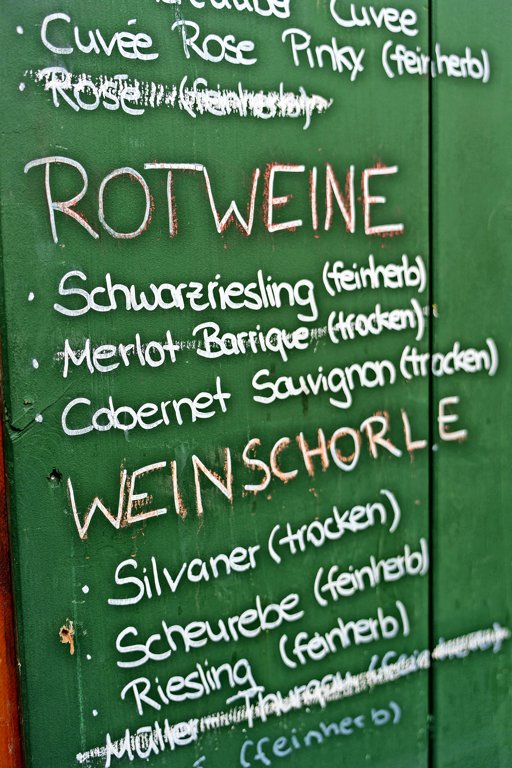 Cuvee
· Cuvée Rose Pinky (feinherb)
· Rosé (feinherb)
ROTWEINE
· Schwarzriesling (feinherb)
· Merlot Barrique (trocken)
· Cabernet Sauvignon (trocken)
WEINSCHORLE
· Silvaner (trocken)
· Scheurebe (feinherb)
· Riesling (feinherb)
· Müller-Thurgau (feinherb)
(feinherb)